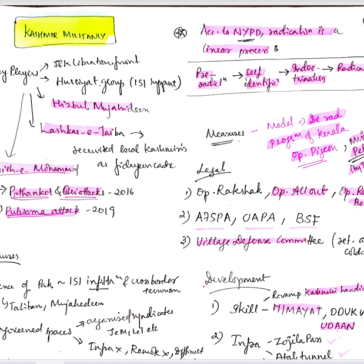 KASHMIR MILITANCY
Players
J&K Liberation front
Hurriyat group (ISI support)
Hizbul Mujahideen
Lashkar-e-Taiba →
recruited local Kashmiris
as fidayeen cadre
Pathankot & Uri attacks - 2016
Pulwama attack - 2019
of Pak ~ ISI infiltn & crossborder
terrorism
Taliban, Mujahedeen
ungoverned spaces → organised syndicates
JeM, LeT etc
Infra x, Remote x, Difficult
Acc. to NYPD, radicalism is a
linear process
Pre-radicln → self identifyn → Indoctrination → Radica
Measures → Model → De rad
program of Kerala
Op. Pigeon
Legal
1) Op. Rakshak, Op. All out, Op.
2) AFSPA, UAPA, BSF
3) Village Defense Committee
Development
Revamp Kashmiri handi
1) Skill - HIMAYAT, DDUK
UDAAN
2) Infra - Zojila Pass
Atal tunnel